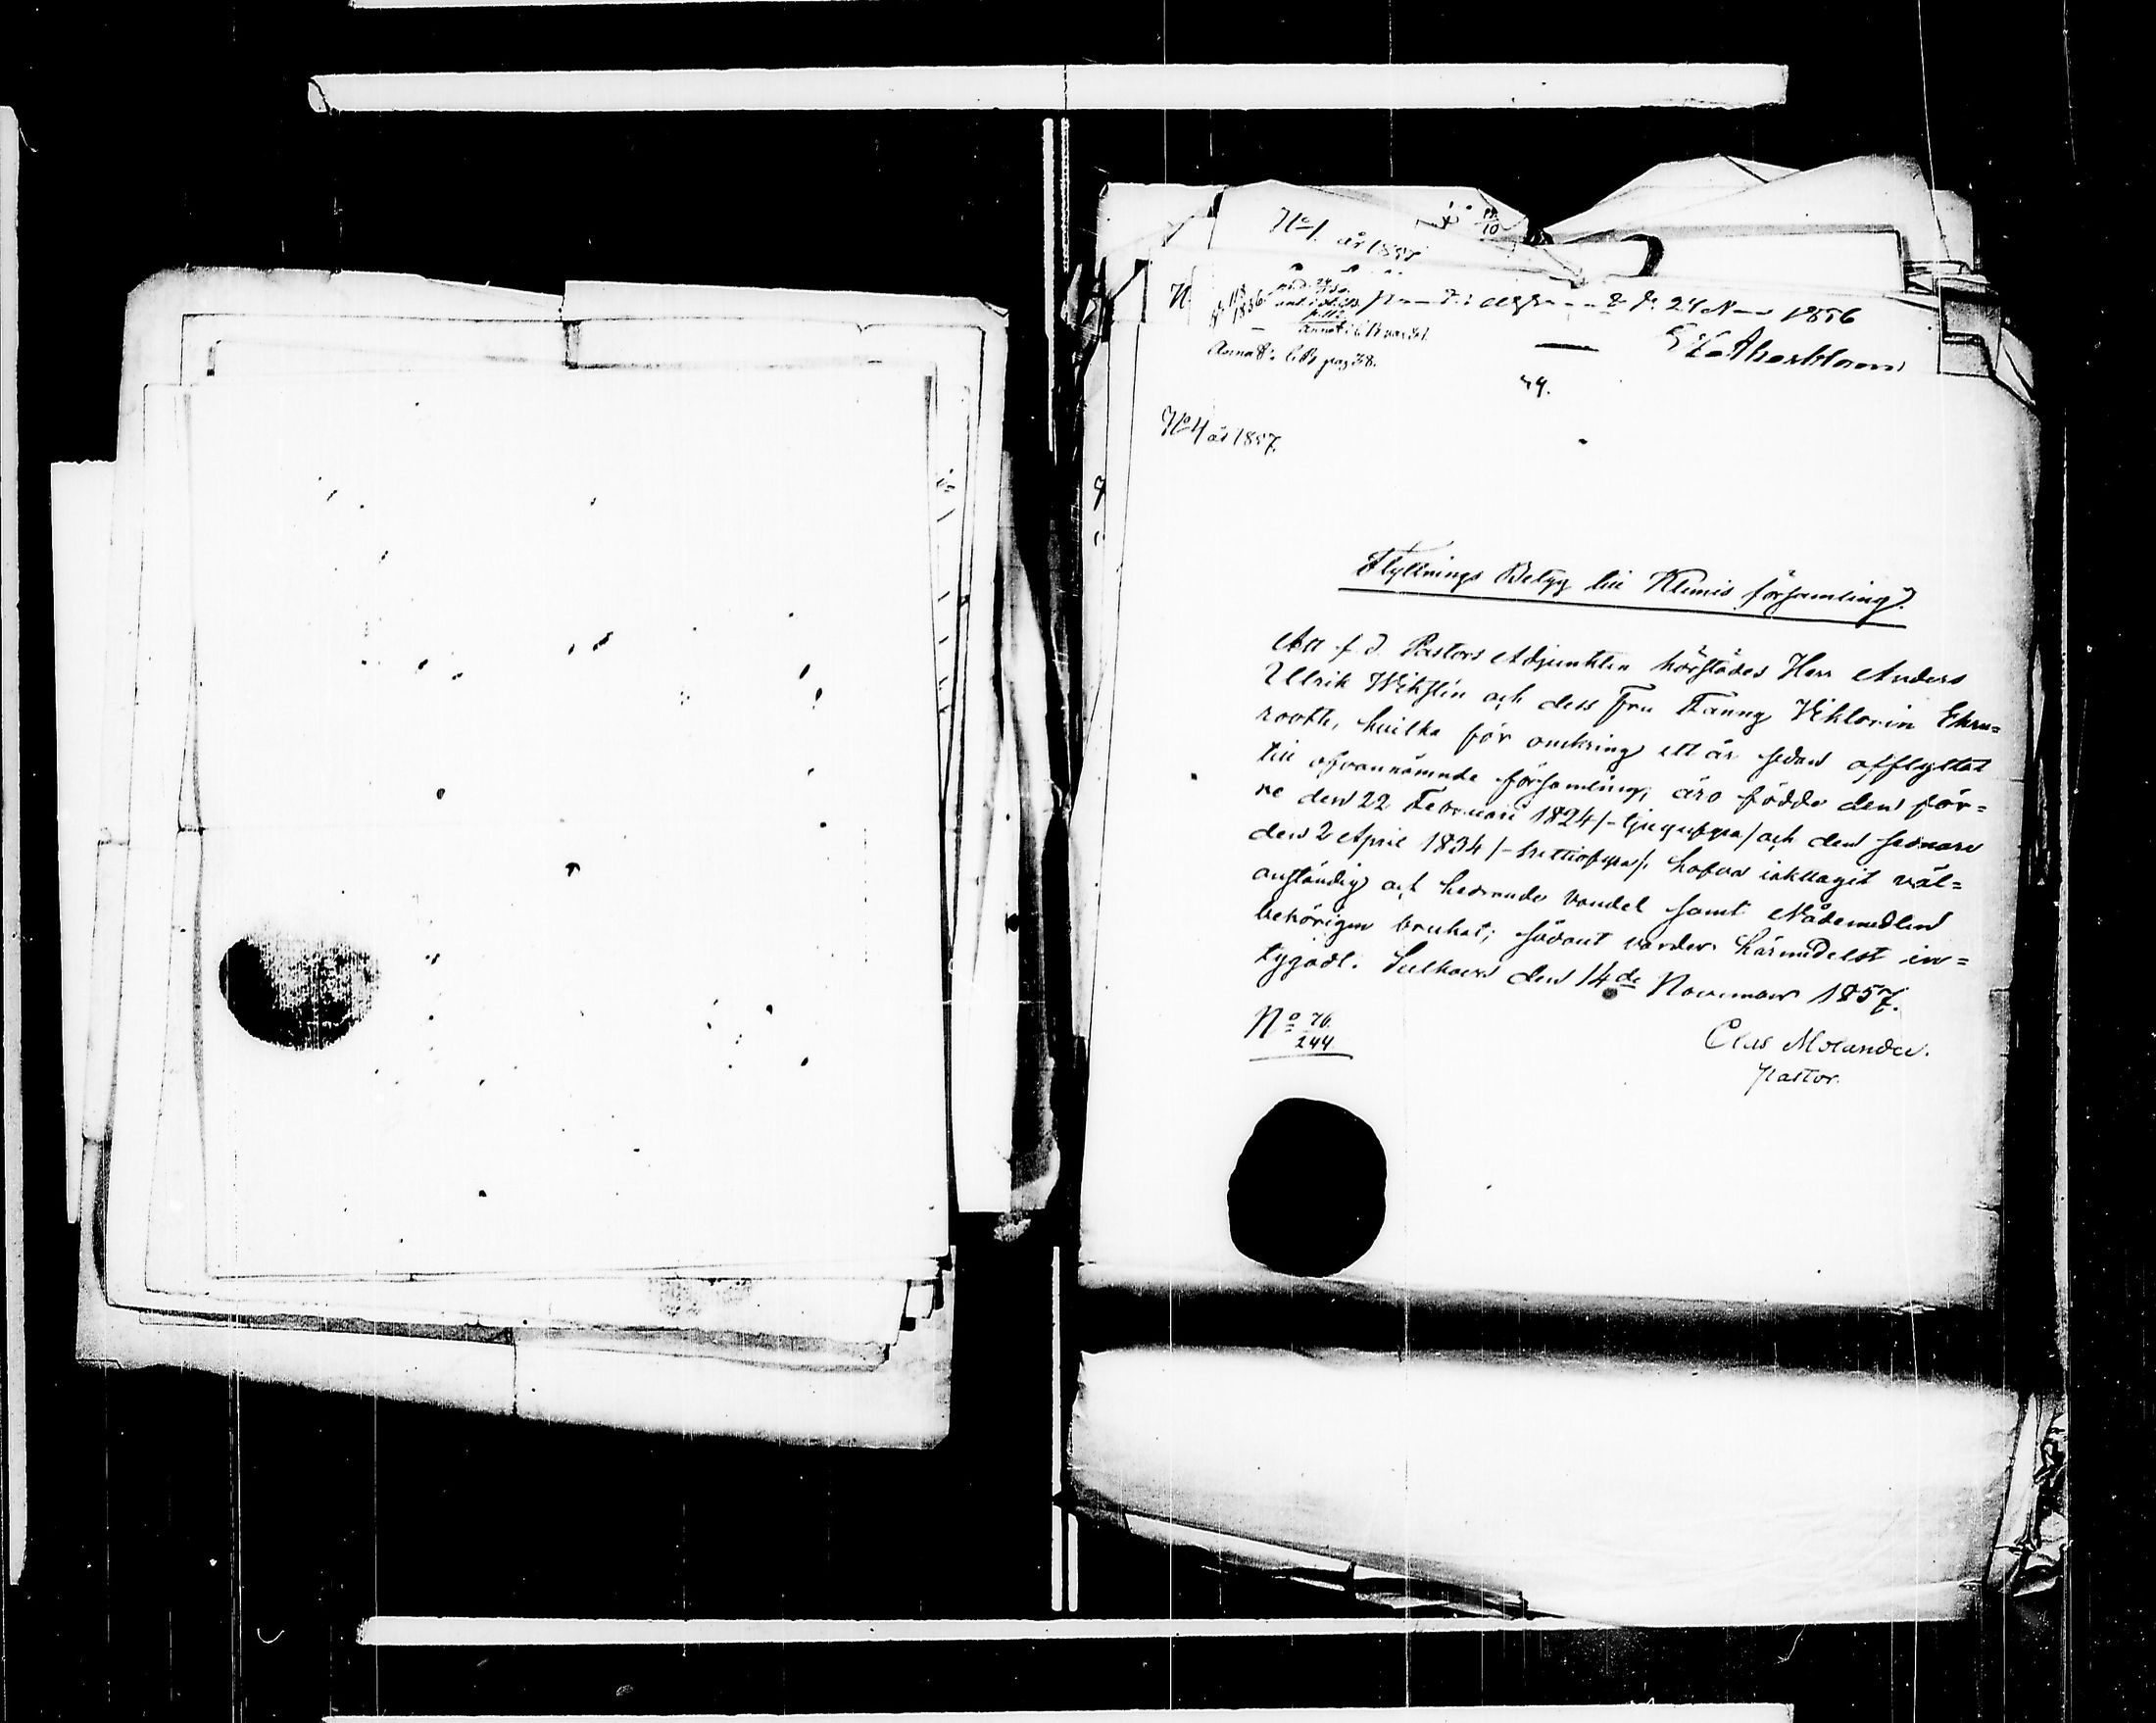 No 1. år 1857
24 Nov 1856
Annot: C.B. pag 38.
49.
No 4 år 1857.
Flyttnings Betyg till Klemis församling.
Att f. d. Pastors Adjunkten härstädes Herr Anders
Ullrik Wikstén och dess Fru Fanny Viktorin Ehrn=
rooth, hvilka för omkring ett år sedan afflyttat
till ofvannämnde församling, äro födde den för=
re den 22 Februari 1824 /-tjugufyra/ och den sednare
den 2 April 1834 /-trettiofyra/. hafva iakttagit väl=
anständig och hedrande vandel samt Nådemedlen
behörigen brukat; sådant varder härmedelst in=
tygadt. Sulkava den 14de November 1857.
No 76.
244.
Clas Molander.
Pastor.